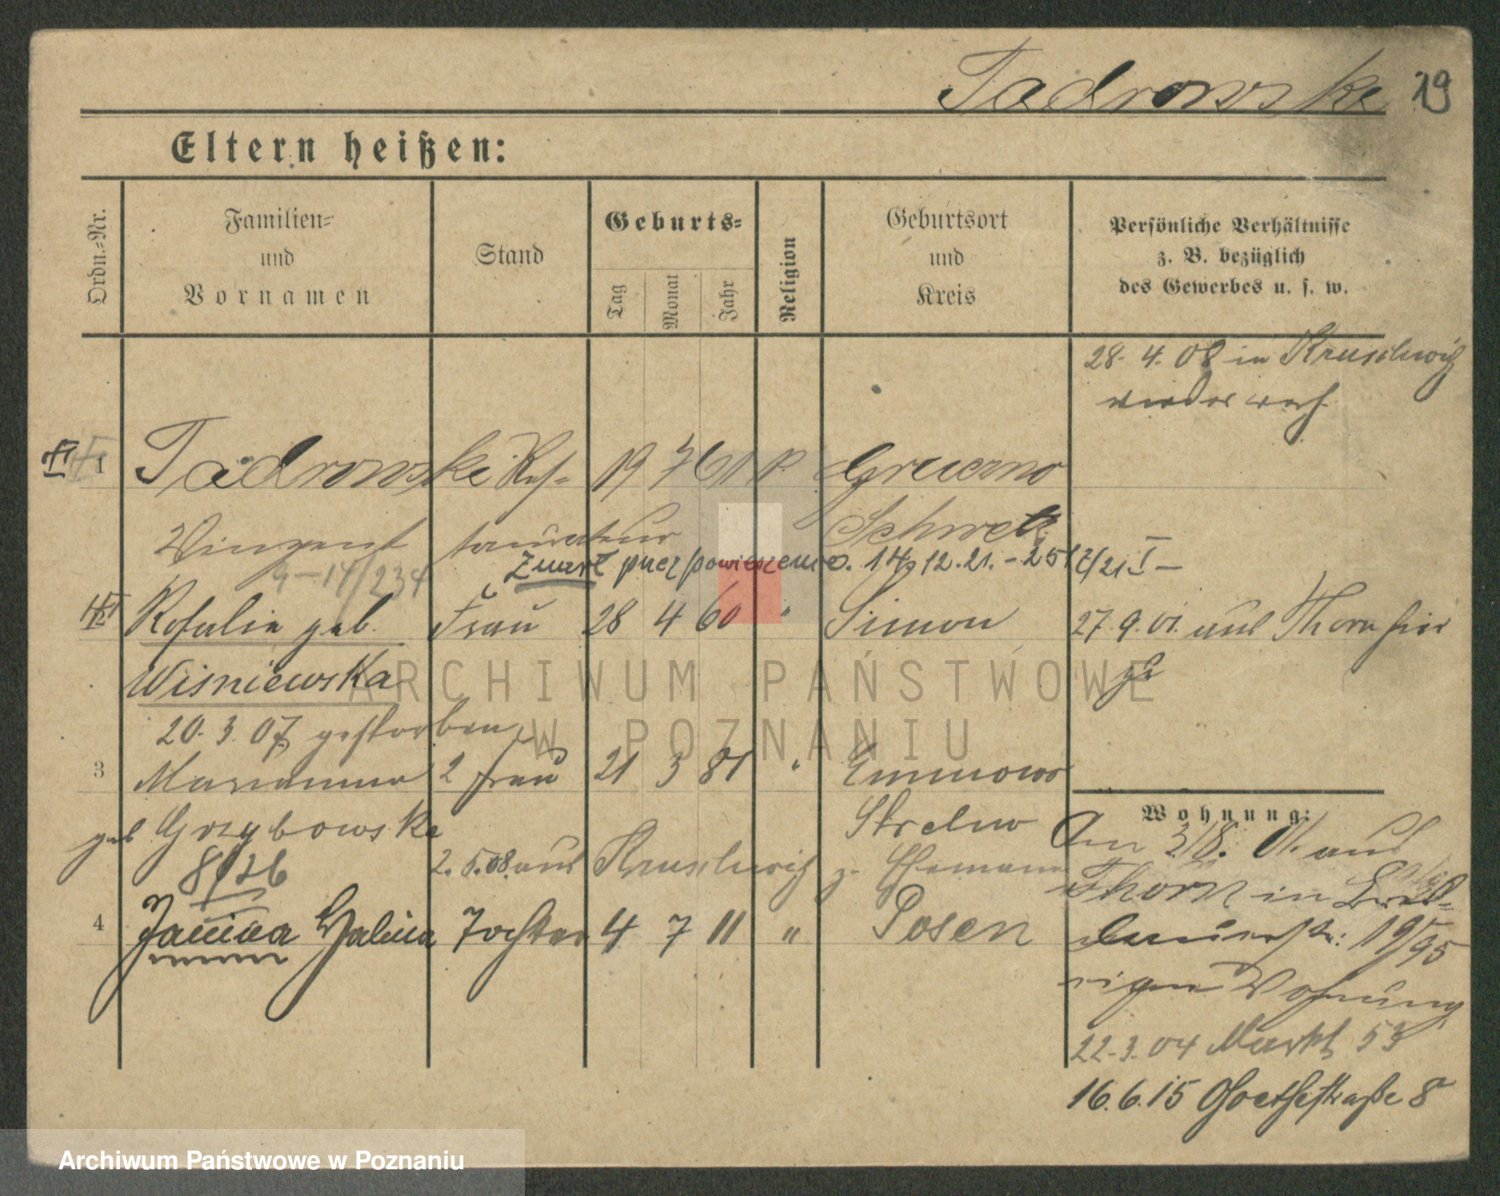 Tadrowski 19
Eltern heißen:
Ordn.-Nr.
Familien-
und
Vornamen
Stand
Geburts-
Tag
Monat
Jahr
Religion
Geburtsort
und
Kreis
Persönliche Verhältnisse
z. B. bezüglich
des Gewerbes u. s. w.
28. 4. 08 in Kruschwitz
wieder verh.
1 Tadrowski Res- 19 7 61 Gruczno
Vinzent taurateur Schwetz
Zmarł przez powieszenie. 14/12.21.
Rosalie geb. Frau 28 4 60 " Simon 27. 9. 01. aus Thorn hier
Wiśniewska
20. 3. 07 gestorben
3 Marianna 2 Frau 21 3 81 "
geb Grzybowski Strelno
8/26
2. 5. 08. aus Kruschwitz z. Ehemann
4 Janina Halina Tochter 4 7 11 " Posen
Wohnung:
Am 3/8. 01. aus
Thorn in
19/95
eigene Wohnung
22. 3. 04 Markt 53
16. 6. 15 Goethestraße 8
ARCHIWUM PAŃSTWOWE
W POZNANIU
Archiwum Państwowe w Poznaniu